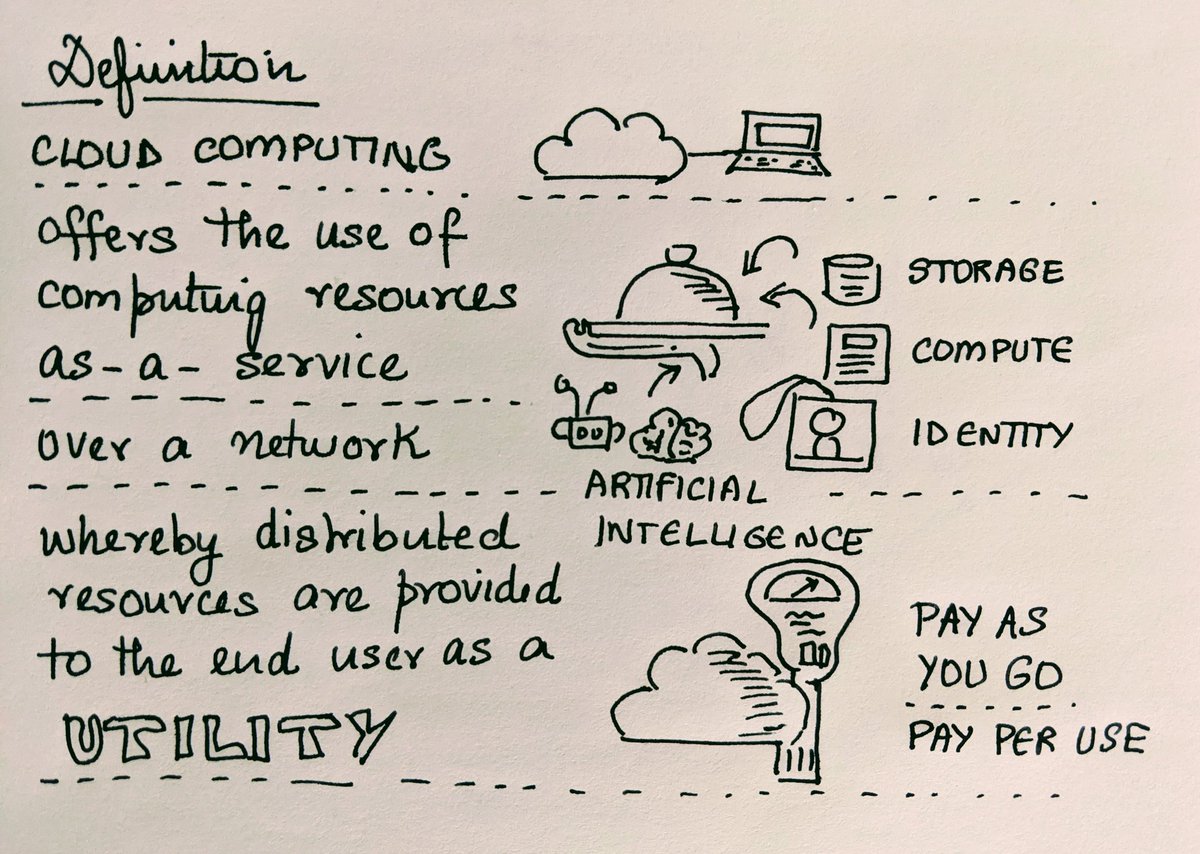 Definition
CLOUD COMPUTING
offers the use of
computing resources
as-a-service
over a network
whereby distributed
resources are provided
to the end user as a
UTILITY
STORAGE
COMPUTE
IDENTITY
ARTIFICIAL
INTELLIGENCE
PAY AS
YOU GO
PAY PER USE